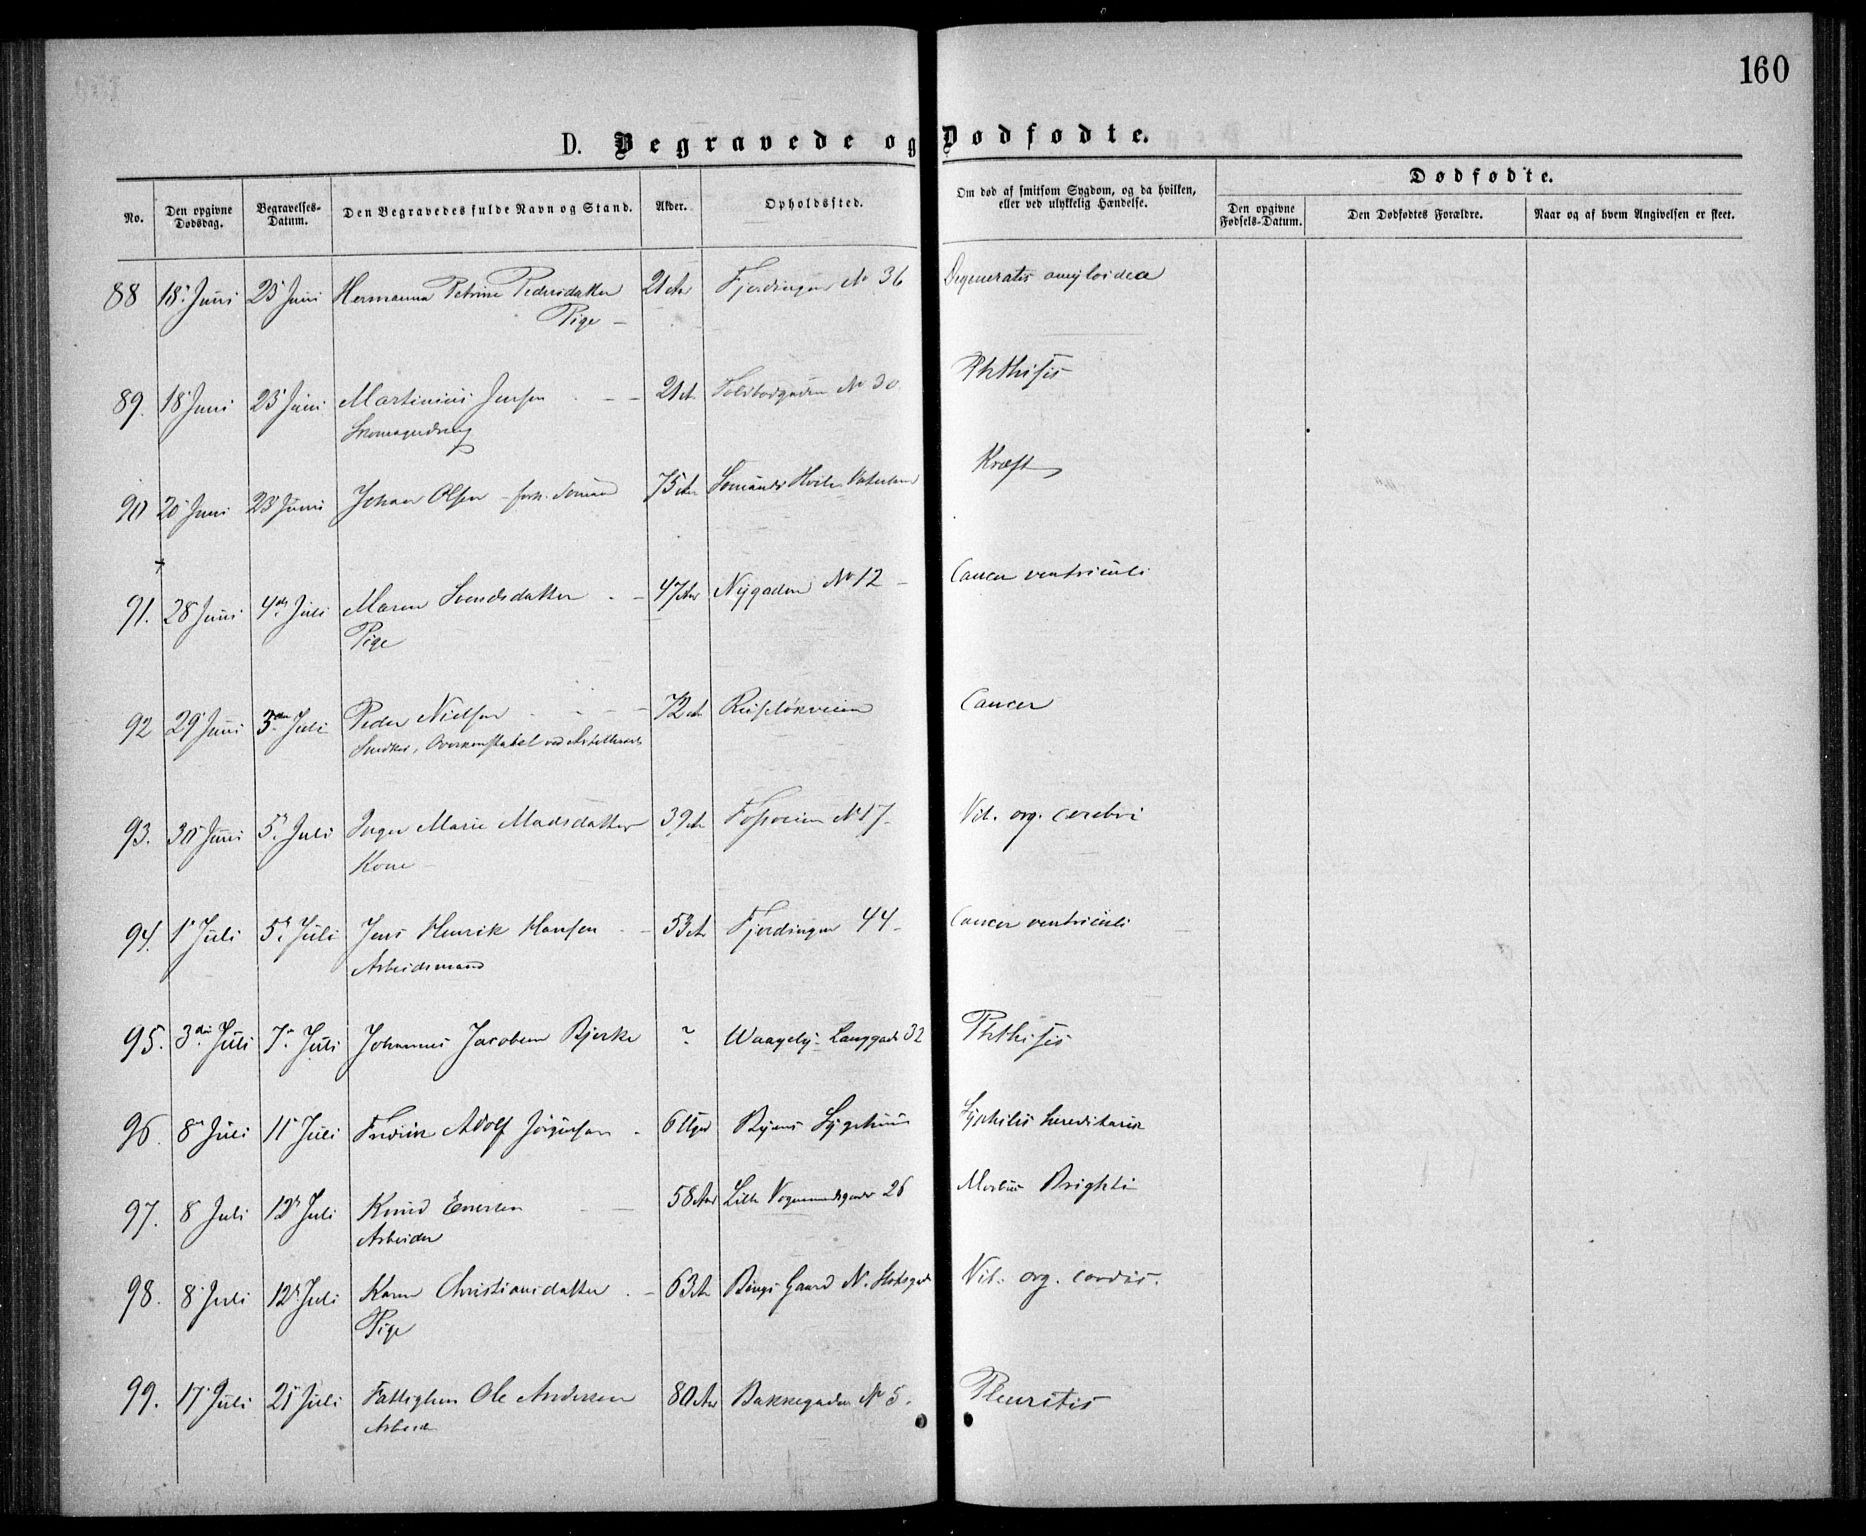 160
D. Begravede og Dødfødte.
No. Den opgivne Dødsdag. Begravelses-Datum. Den Begravedes fulde Navn og Stand. Alder. Opholdssted. Om død af smitsom Sygdom, og da hvilken, eller ved ulykkelig Hændelse. Dødfødte.
Den opgivne Fødsels-Datum. Den Dødfødtes Forældre. Naar og af hvem Angivelsen er skeet.
88 18 Juni 23 Juni Hermanna Petrine Pedersdatter 21 Aar Fjerdingen No 36 Degeneratio amyloidea
Pige –
89. 18 Juni 23 Juni Martinius Jensen – – 21 A Toldbodgaden No 30. Phthisis
Skomagerdreng
90 20 Juni 23 Juni Johan Olsen – forh. Sømand 75 Aar Sømands Hvile Vaterland Kræft
91. 28 Juni 4de Juli Maren Svendsdatter – 47 Aar Nygaden No 12 – Cancer ventriculi
Pige
92 29 Juni 3die Juli Peder Nielsen – – – 72 A Ruseløkveien Cancer
Snedker, Overkonstabel ved Artilleriet
93. 30 Juni 5 Juli Inger Marie Madsdatter 39 A Fossveien No 17 – Vit. org. cerebri
Kone –
94. 1 Juli 5 Juli Jens Henrik Hansen – 53 A Fjerdingen 44 – Cancer ventriculi
Arbeidsmand
95. 3die Juli 7 Juli Johannes Jacobsen Bjerke ? Waageby- Langgade 32 Phthisis
96. 8 Juli 11 Juli Fredrik Adolf Jørgensen – 6 Uger Byens Sygehuus Syphilis hereditaria
97. 8 Juli 12 Juli Knud Enersen – – 58 Aar Lille Vognmandsgade 26 Morbus Brighti
Arbeider
98. 8 Juli 12 Juli Karen Christiansdatter – 63 A Bings Gaard N. Slotsgade Vit. org. cordis.
Pige
99. 17 Juli 21 Juli Fattiglem Ole Andersen 80 Aar Bakkegaden No 5. Pleuritis
Arbeider